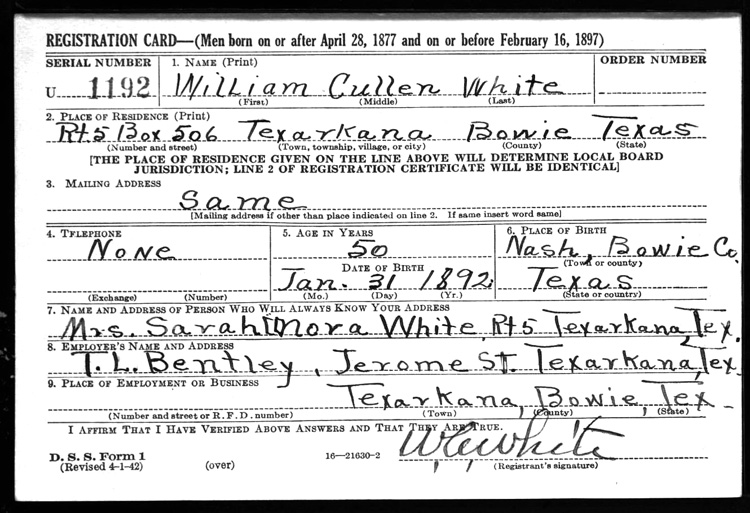 REGISTRATION CARD—(Men born on or after April 28, 1877 and on or before February 16, 1897)
SERIAL NUMBER 1. NAME (Print) ORDER NUMBER
U 1192 William Cullen White
(First) (Middle) (Last)
2. PLACE OF RESIDENCE (Print)
Rt 5 Box 506 Texarkana Bowie Texas
(Number and street) (Town, township, village, or city) (County) (State)
[THE PLACE OF RESIDENCE GIVEN ON THE LINE ABOVE WILL DETERMINE LOCAL BOARD
JURISDICTION; LINE 2 OF REGISTRATION CERTIFICATE WILL BE IDENTICAL]
3. MAILING ADDRESS
Same
[Mailing address if other than place indicated on line 2. If same insert word same]
4. TELEPHONE 5. AGE IN YEARS 6. PLACE OF BIRTH
None 50 Nash, Bowie Co.
DATE OF BIRTH (Town or county)
Jan. 31 1892 Texas
(Exchange) (Number) (Mo.) (Day) (Yr.) (State or country)
7. NAME AND ADDRESS OF PERSON WHO WILL ALWAYS KNOW YOUR ADDRESS
Mrs. Sarah Nora White, Rt 5 Texarkana, Tex.
8. EMPLOYER'S NAME AND ADDRESS
T. L. Bentley, Jerome St. Texarkana, Tex
9. PLACE OF EMPLOYMENT OR BUSINESS
Texarkana, Bowie, Tex
(Number and street or R. F. D. number) (Town) (County) (State)
I AFFIRM THAT I HAVE VERIFIED ABOVE ANSWERS AND THAT THEY ARE TRUE.
W. C. White
D. S. S. Form 1
(Revised 4-1-42) (over) 16—21630-2 (Registrant's signature)